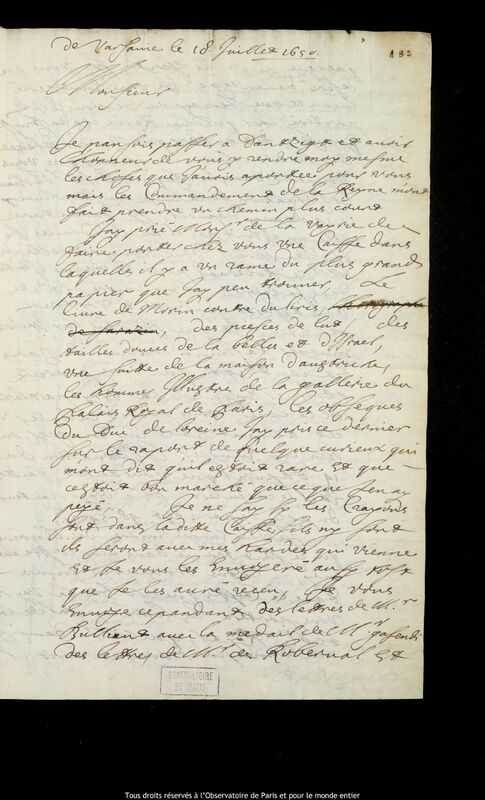 de Varsavie le 18 Juillet 1650.
183
Monsieur
Je pansois passer a Dantzigt et avoir
l'honneur de vous y rendre moy mesme
les choses que j'avois aportée pour vous
mais les Commandement de la Reyne mont
fait prendre un chemin plus court
Jay prié Mons.r de la Vayrie de
faire porter chez vous une Caisse dans
laquelles il y a un rame du plus grand
papier que jay peu trouver, Le
livre de Morin contre duliris,
de sarazin, des pieces de lut, des
tailles douces de la belles et d'Israel,
une suitte de la maison daustriche,
les hommes Illustre de la gallerie du
Palais Royal de Paris, les obseques
du Duc de loreine jay pris ce dernier
sur le raport de quelque curieux qui
mont dit quil estoit rare et que
cestoit bon marché que ce que jen ay
peyé, Je ne say sy les Crayons
sont dans laditte Caisse, sils ny sont
ils seront avec mes hardes qui vienne
et je vous les Envoyeré aussy tost
que je les auré receu, Je vous
Envoye cepandant des lettres de M.r
Bulliaut avec la medail de M.r gasendi
des lettres de M.r de Roberval et
OBSERVATOIRE
DE PARIS
Tous droits réservés à l'Observatoire de Paris et pour le monde entier